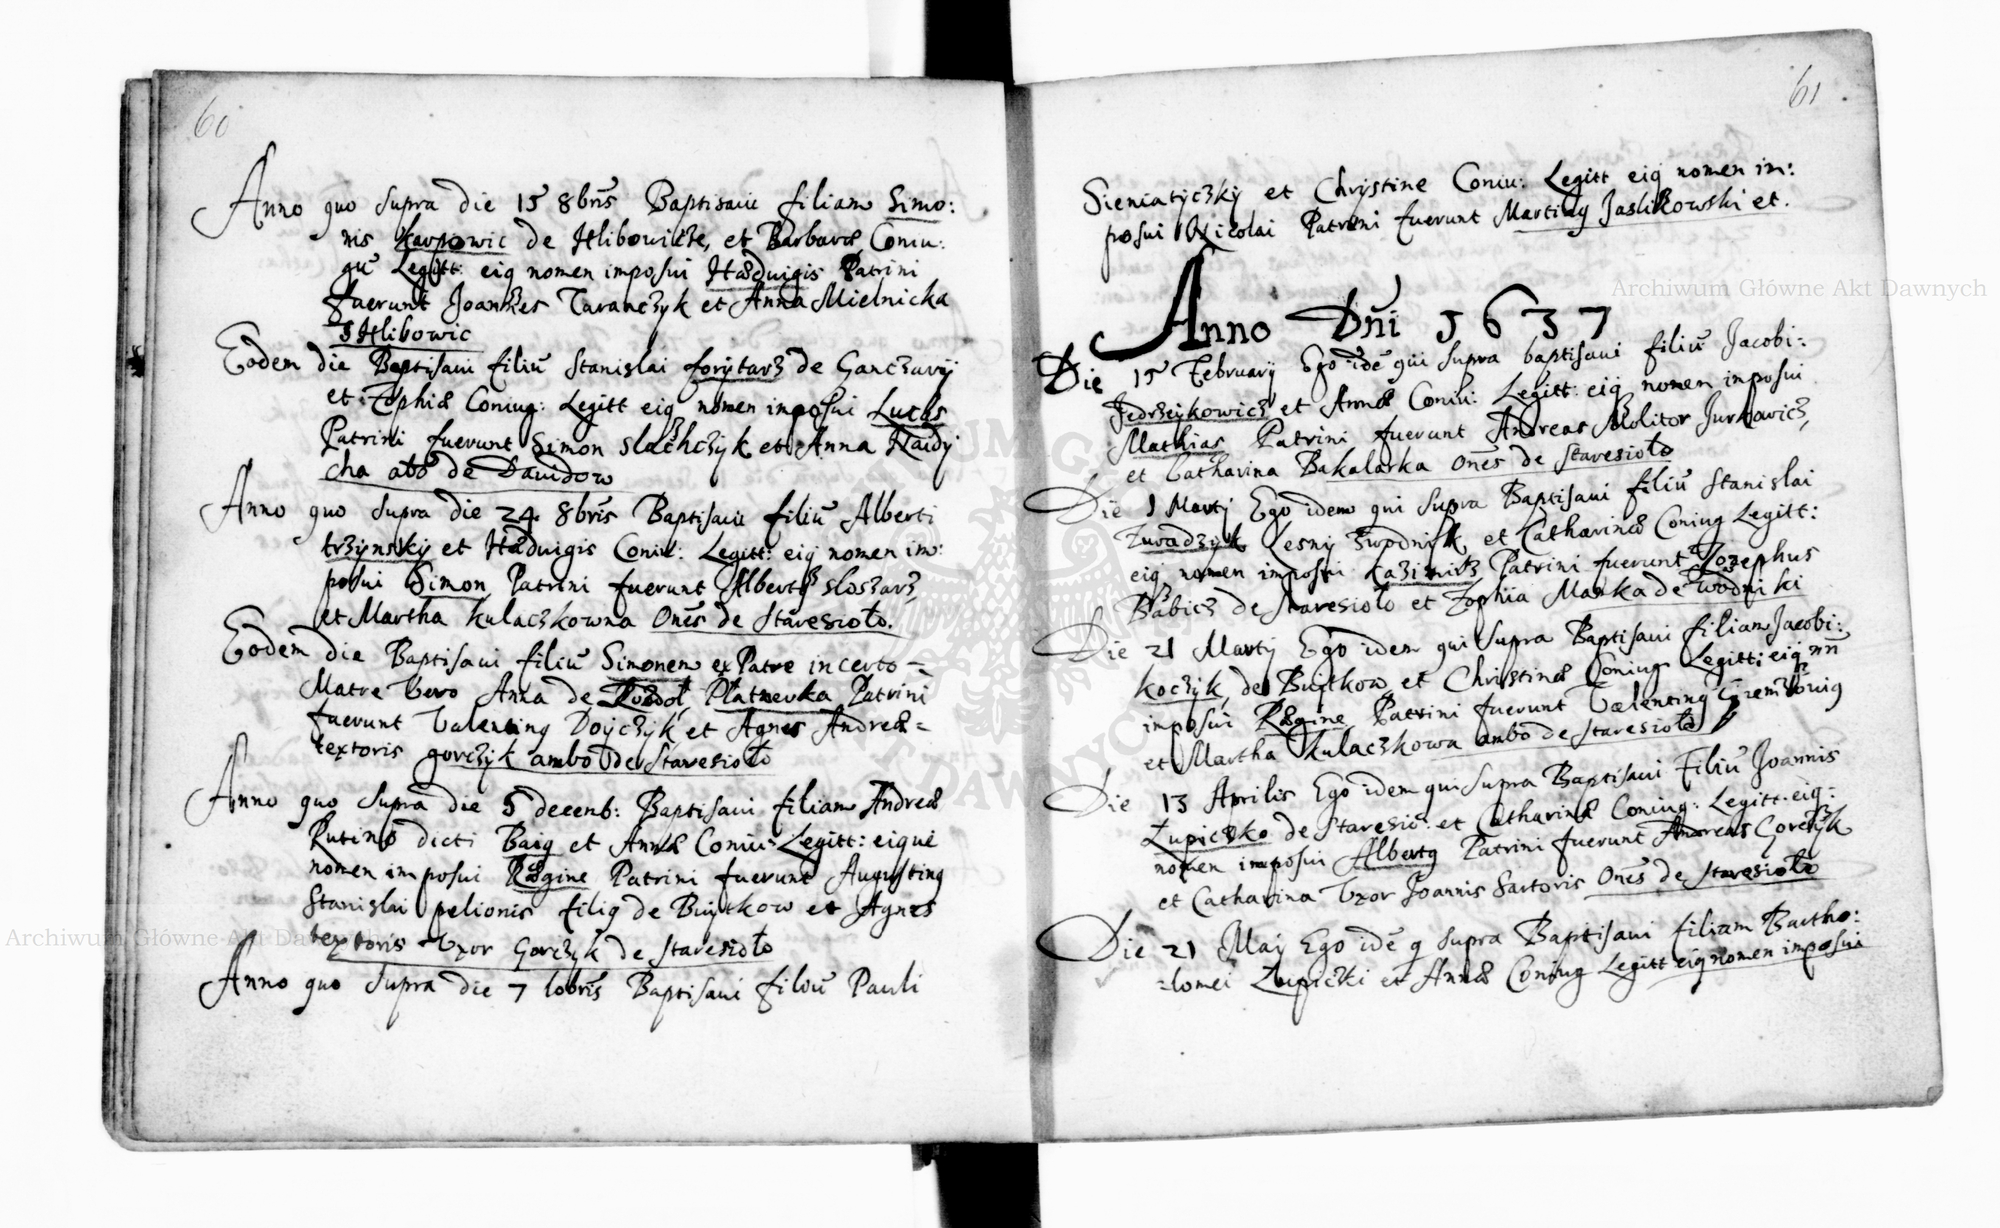 60
Anno quo supra die 15 8bris Baptisavi filiam Simo:
nis Karpowic de Hlibowicze, et Barbarae Coniu:
gū Legitt: eiq nomen imposui Haeduigis Patrini
fuerunt Joannes Taranczyk et Anna Mielnicka
z Hlibowic
Eodem die Baptisavi filiū Stanislai forytarz de Ganczary
et Zophiae Coniug: Legitt eiq nomen imposui Lucas
Patrini fuerunt Simon Slachczyk et Anna Haidy
cha abo de Dauidow
Anno quo supra die 24 8bris Baptisavi filiū Alberti
trzynsky et Haeduigis Coniu: Legitt: eiq nomen im:
posui Simon Patrini fuerunt Albertq sloszarz
et Martha Kulaczkowna Onēs de Staresioło.
Eodem die Baptisavi filiū Simonem ex Patre incerto =
Matre Vero Anna de Rozdoł Płatnerka Patrini
fuerunt Valentinq Doyczyk et Agnes Andreae =
textoris gorczyk ambo de Staresioło
Anno quo supra die 5 decenb: Baptisavi filiam Andreae
Rutino dicti Baiq et Annae Coniu: Legitt: eique
nomen imposui Raegine Patrini fuerunt Augustinq
Stanislai pelionis filiq de Buytkow et Agnes
textoris Vxor Gorczyk de Staresioło
Anno quo supra die 7 10bris Baptisavi filiū Pauli
61
Sieniatyczky et Chrystine Coniu: Legitt eiq nomen im:
posui Nicolai Patrini fuerunt Martinq Jaslikowski et.
Anno Dn̄i 1637
Die 15 February Ego idē qui supra baptisavi filiū Jacobi:
Jedrzeykowicz et Annae Coniu: Legitt: eiq nomen imposui
Mathias Patrini fuerunt Andreas Molitor Jurkowicz,
et Catharina Bakalarka Onēs de Staresioło
Die 1 Marty Ego idem qui supra Baptisavi filiū Stanislai
Zuradzyk Lesny zwodnik et Catharinae Coniug Legitt:
eiq nomen imposui Kazimirz Patrini fuerunt Jozephus
Babicz de Staresioło et Zophia Marka de wodniki
Die 21 Marty Ego idem qui supra Baptisavi filiam Jacobi:
Koczyk de Buytkow et Christinae Coniug Legitt: eiq nn̄
imposui Raegine Patrini fuerunt Valentinq
et Martha Kulaczkowa ambo de Staresioło
Die 13 Aprilis Ego idem qui supra Baptisavi Filiū Joannis
Łupiczko de Staresio: et Catharinae Coniug: Legitt. eiq:
nomen imposui Albertq Patrini fuerunt Andreas Gorczyk
et Catharina Vxor Joannis Sartoris Onēs de Staresioło
Die 21 Maÿ Ego idē q supra Baptisavi filiam Bartho:
=lomei Łupiczki et Annae Coniug Legitt eiq nomen imposui
Archiwum Główne Akt Dawnych
Archiwum Główne Akt Dawnych